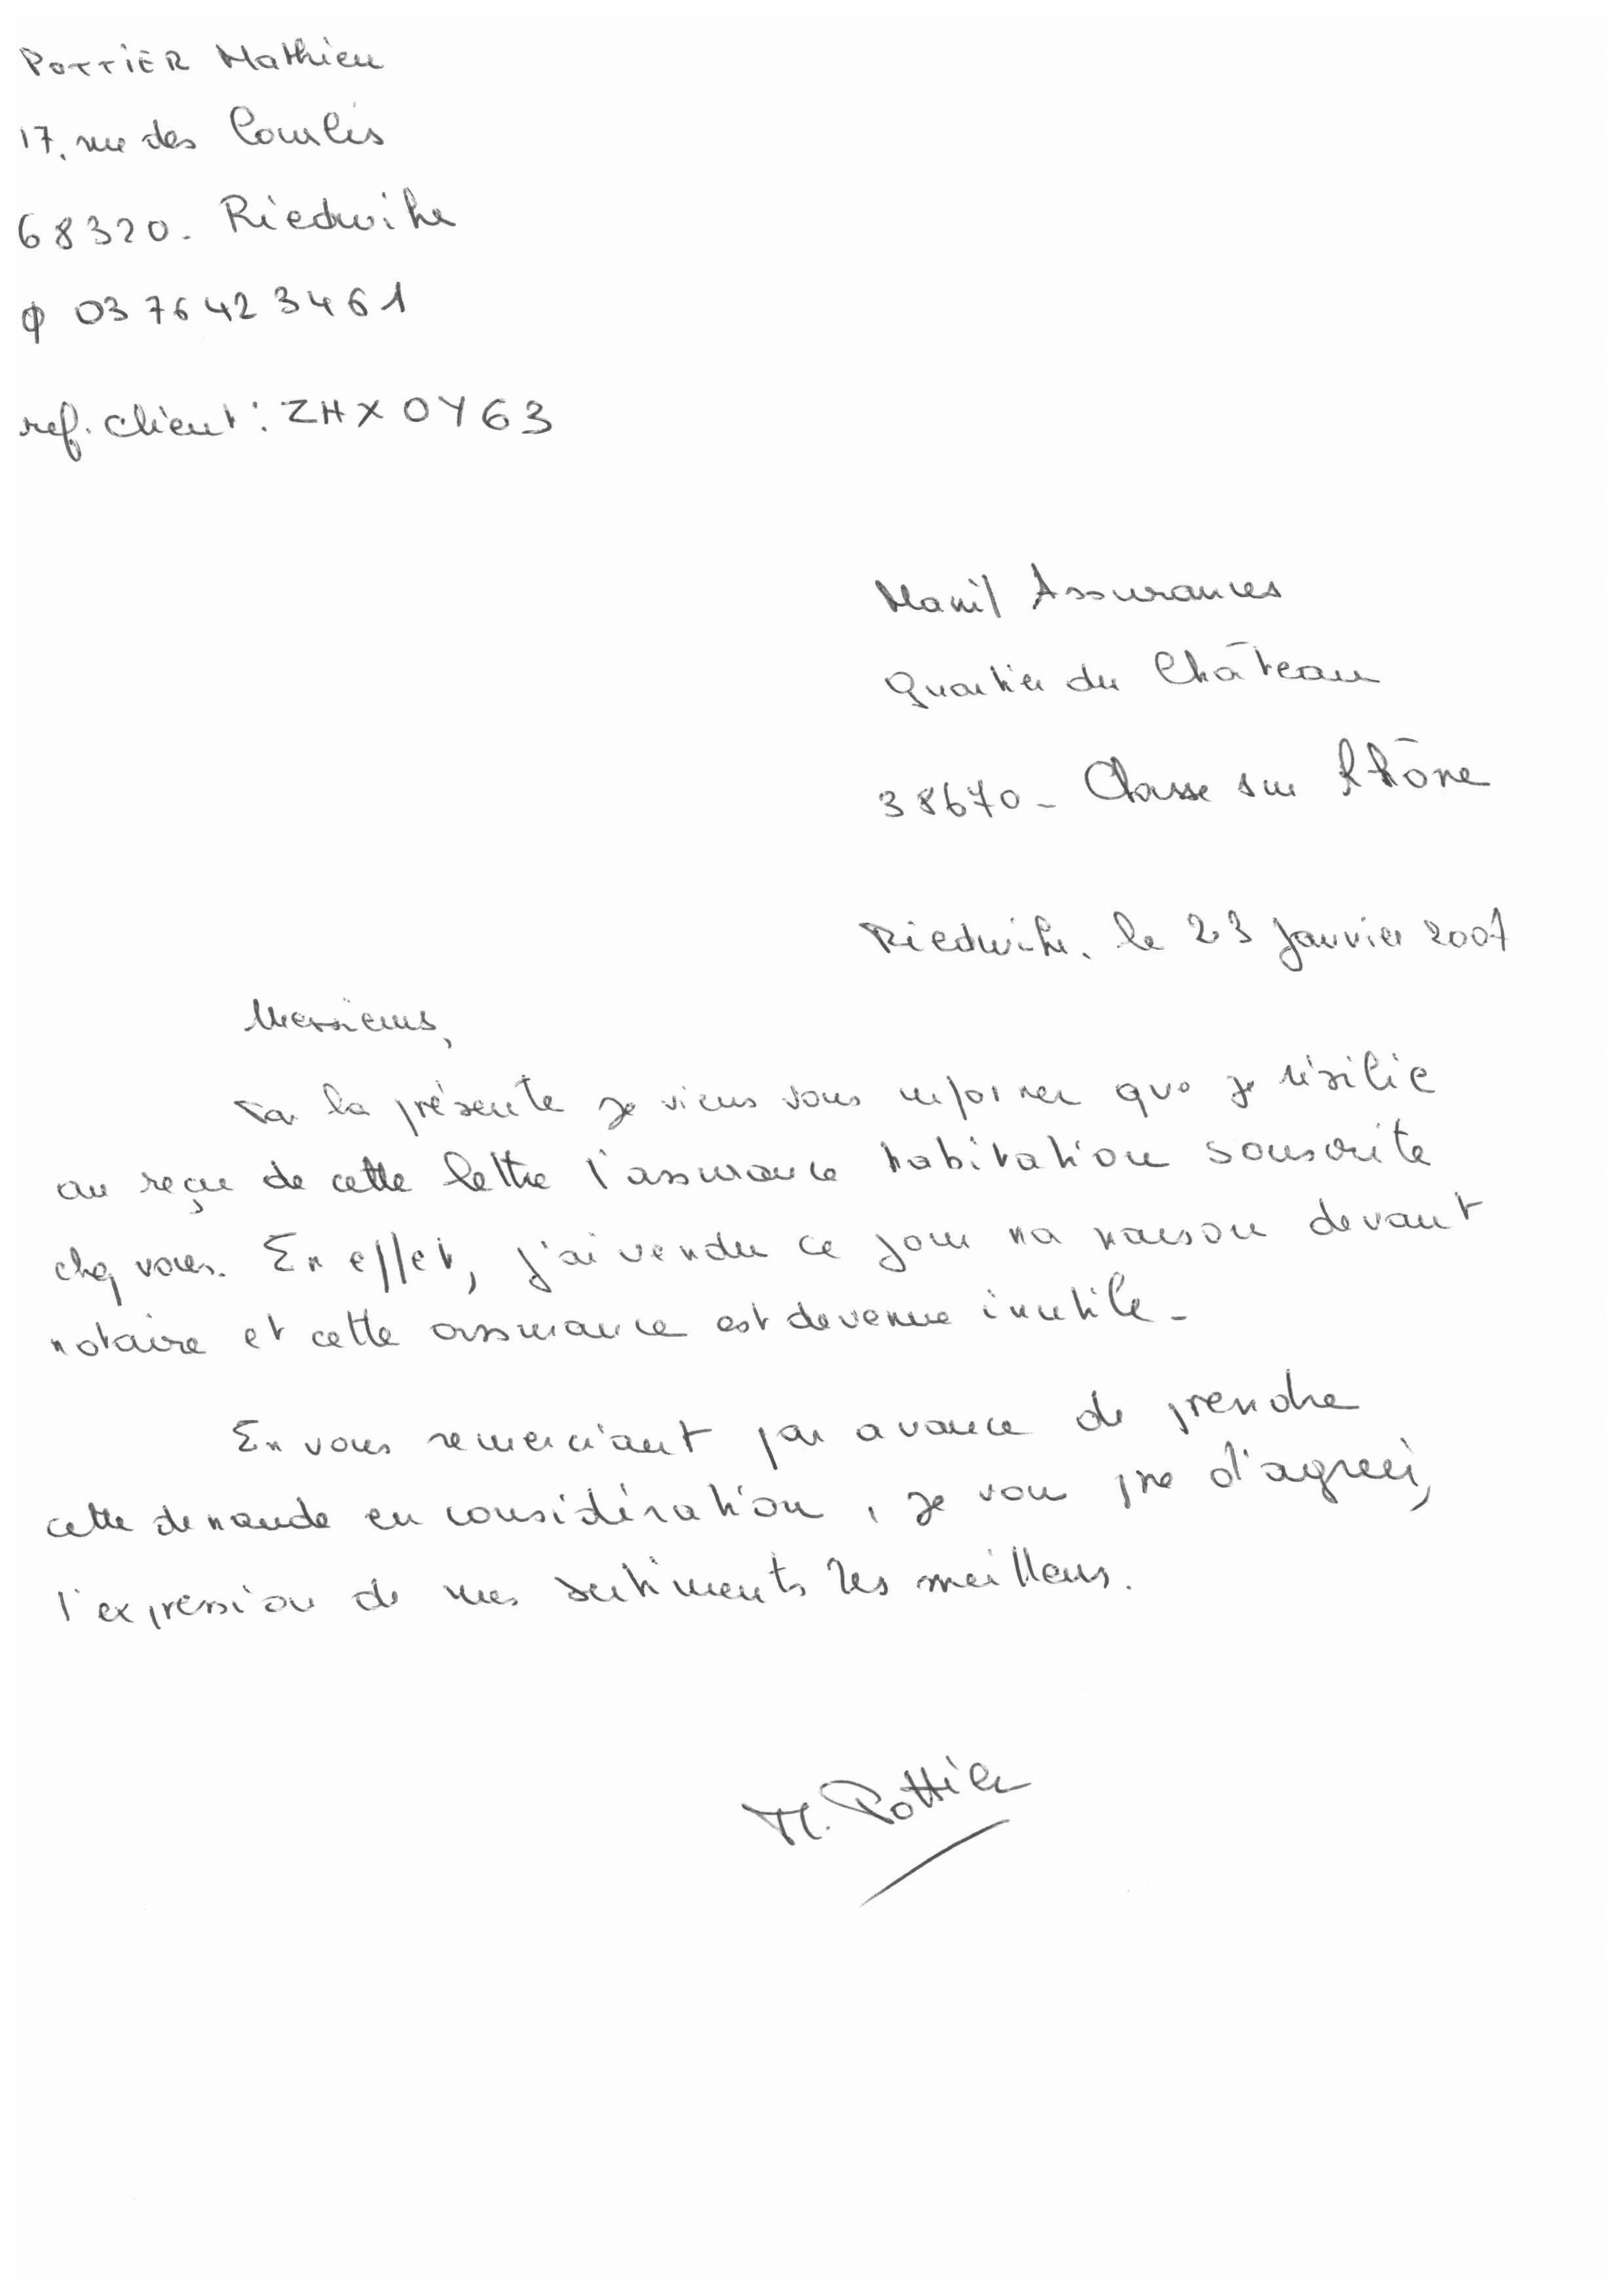 POTTIER Mathieu
17, rue des Courlis
68320. Riedwihr
φ 03 76 42 34 61
ref. client : ZHXOY63
Manil Assurances
Quartier du Château
38670 - Chasse sur Rhône
Riedwihr, le 23 janvier 2007
Messieurs,
Par la présente je viens vous informer que je résilie
au reçu de cette lettre l'assurance habitation souscrite
chez vous. En effet, j'ai vendu ce jour ma maison devant
notaire et cette assurance est devenue inutile -
En vous remerciant par avance de prendre
cette demande en considération, je vous prie d'agréer,
l'expression de mes sentiments les meilleurs.
M. Pottier